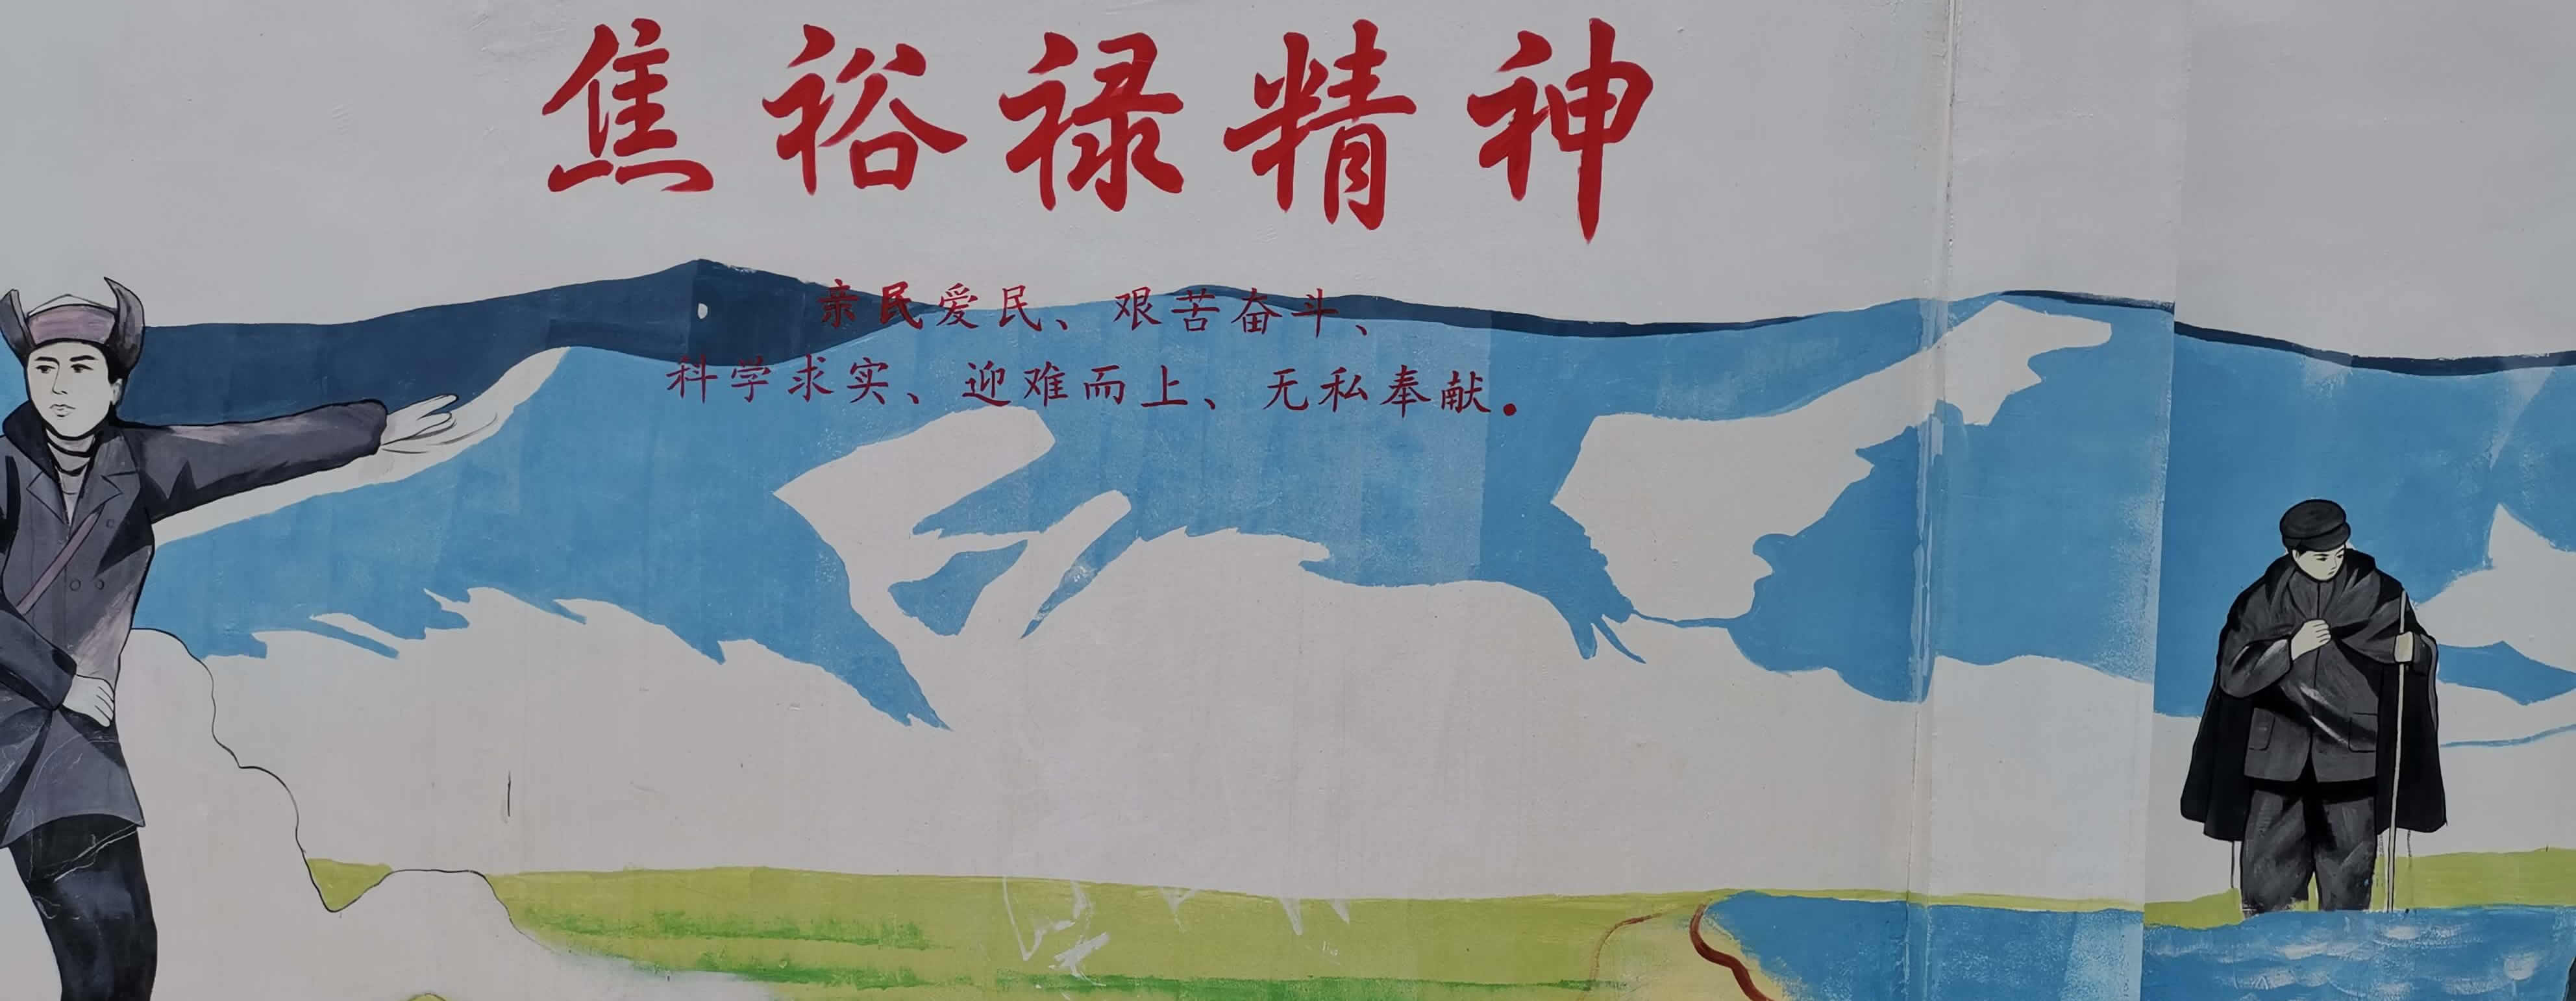 焦裕禄精神
亲民爱民、艰苦奋斗、
科学求实、迎难而上、无私奉献.